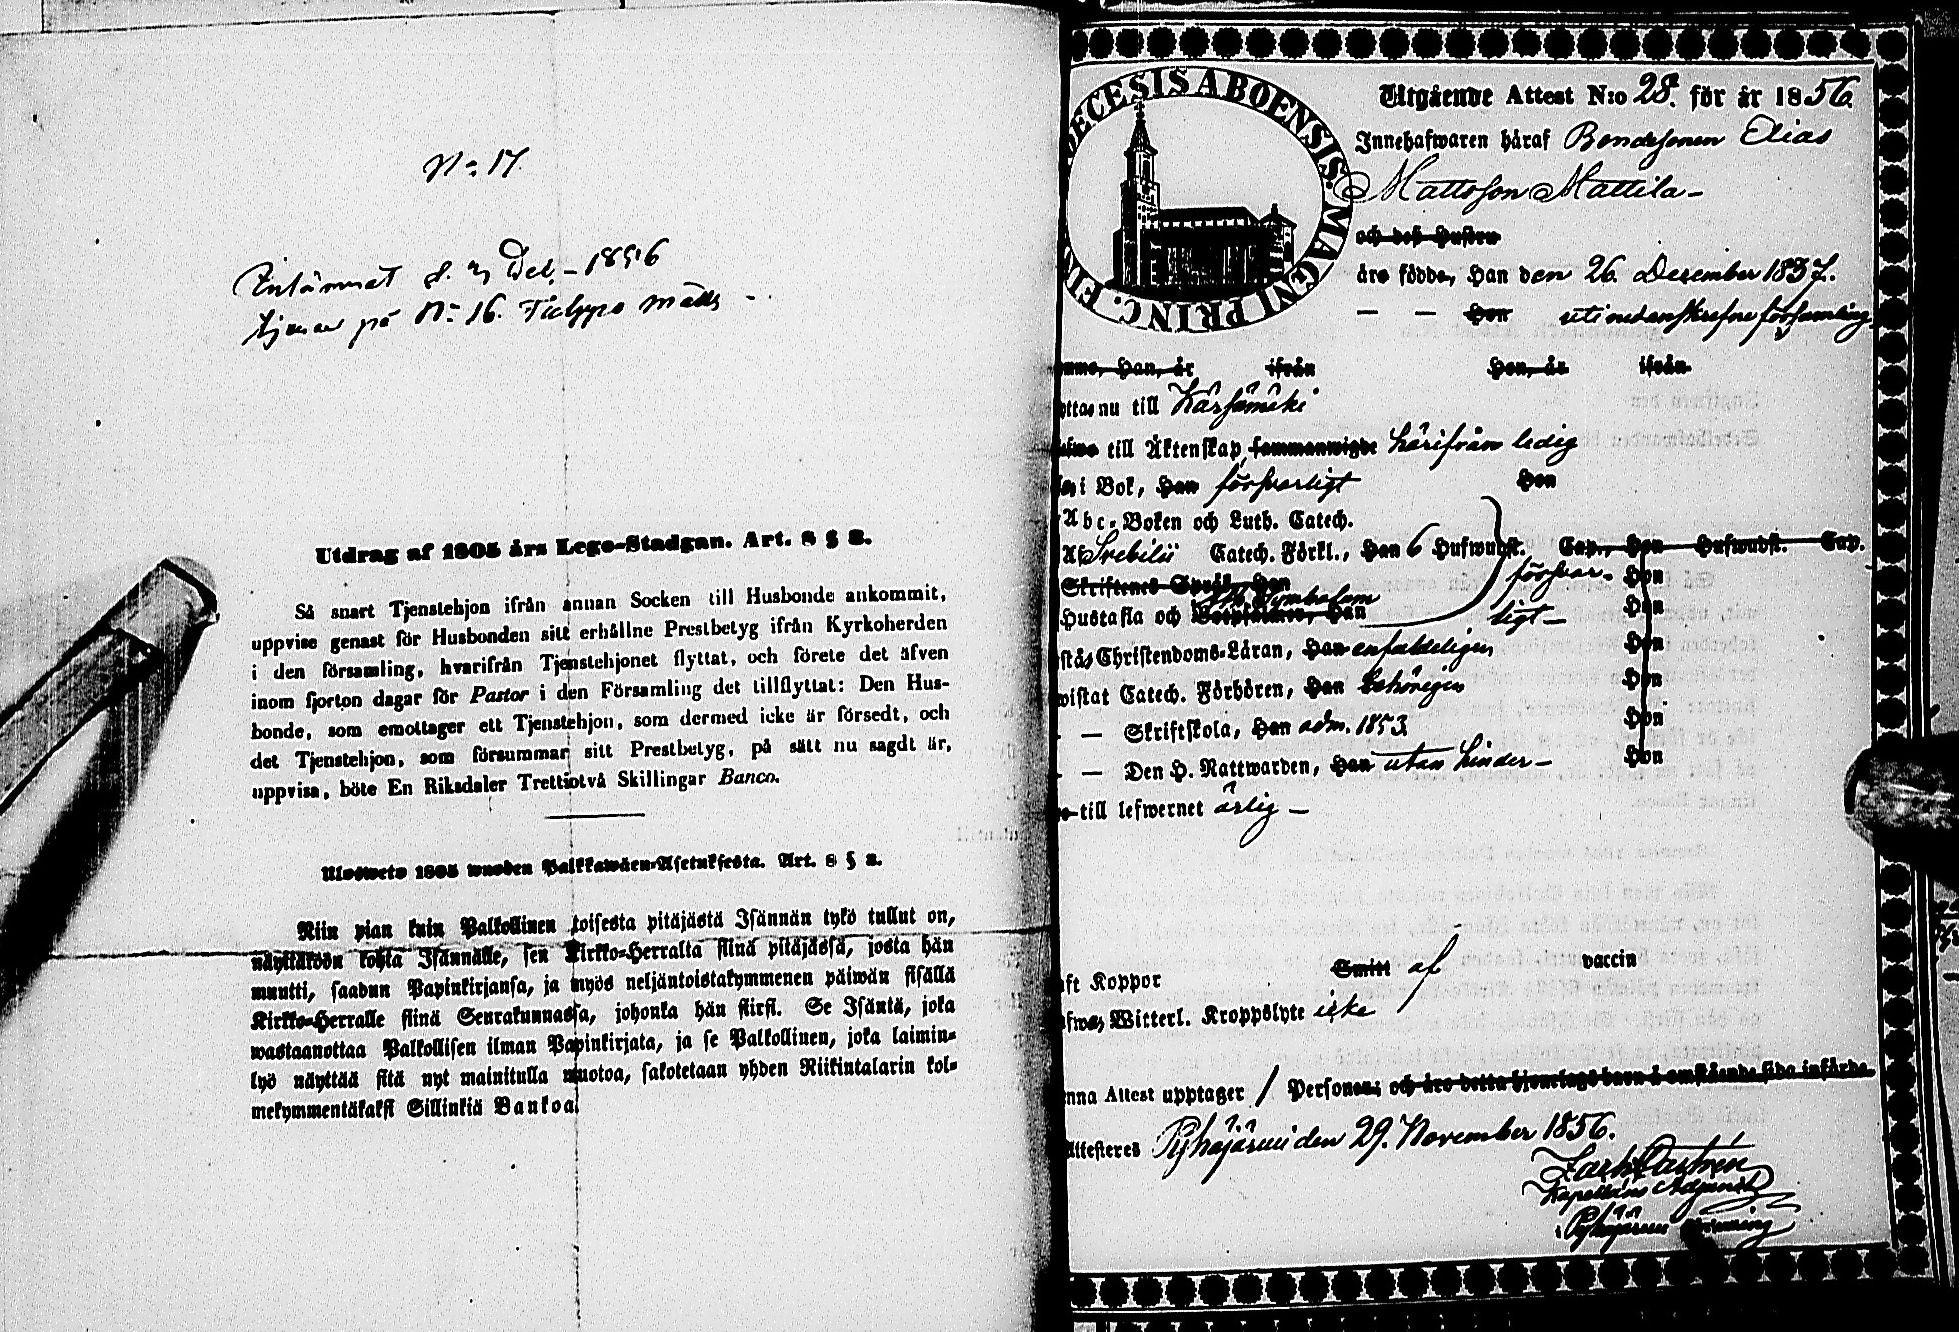 N:o 17.
Inlämnat d. 7 Dec. 1856
tjenar på N:o 16. Filppo mäki
Utdrag af 1805 års Lego-Stadgan. Art. 8 § 2.
Så snart Tjenstehjon ifrån annan Socken till Husbonde ankommit,
uppvise genast för Husbonden sitt erhållne Prestbetyg ifrån Kyrkoherden
i den församling, hvarifrån Tjenstehjonet flyttat, och förete det äfven
inom fjorton dagar för Pastor i den Församling det tillflyttat: Den Hus-
bonde, som emottager ett Tjenstehjon, som dermed icke är försedt, och
det Tjenstehjon, som försummar sitt Prestbetyg, på sätt nu sagdt är,
uppvisa, böte En Riksdaler Trettiotvå Skillingar Banco.
Ulosweto 1805 wuoden Palkkawäen-Asetuksesta. Art. 8 § 2.
Niin pian kuin Palkollinen toisesta pitäjästä Isännän tykö tullut on,
näyttäköön kohta Isännälle, sen Kirkko-Herralta siinä pitäjässä, josta hän
muutti, saadun Papinkirjansa, ja myös neljäntoistakymmenen päiwän sisällä
Kirkko-Herralle siinä Seurakunnassa, johonka hän siirsi. Se Isäntä, joka
wastaanottaa Palkollisen ilman Papinkirjata, ja se Palkollinen, joka laimin-
lyö näyttää sitä nyt mainitulla muotoa, sakotetaan yhden Riikintalarin kol-
mekymmentäkaksi Sillinkiä Bankoa.
DIŒCESIS ABOENSIS. MAGNI PRINC. FIN
Utgående Attest N:o 28. för år 1856.
Innehafwaren häraf Bondesonen Elias
Mattsson Mattila
och deß Hustru
äro födde, Han den 26. December 1837.
— — Hon uti nedanskrefne församling
Han, år ifrån Hon, år ifrån
nu till Kärsämäki
till Äktenskap sammanwigde härifrån ledig
i Bok, Han försvarligt Hon
Abc-Boken och Luth. Catech.
Af Svebilii Catech. Förkl., Han 6 Hufwudst. Cap., Hon Hufwudst. Cap.
Skriftenes Språk, Han försvar- Hon
Hustafla och Symbolum Han ligt — Hon
Christendoms-Läran, Han enfaldeligen Hon
Catech. Förhören, Han behörigen Hon
— Skriftskola, Han adm. 1853 Hon
— Den H. Nattwarden, Han utan hinder — Hon
till lefwernet ärlig —
Koppor Smitt af vaccin
Witterl. Kroppslyte icke
Attest upptager 1 Personer; och äro detta hjonelags barn å omstående sida införde.
Attesteres Pyhäjärvi den 29. November 1856.
Zach Castrén
Kapellans Adjunct
i Pyhäjärvi